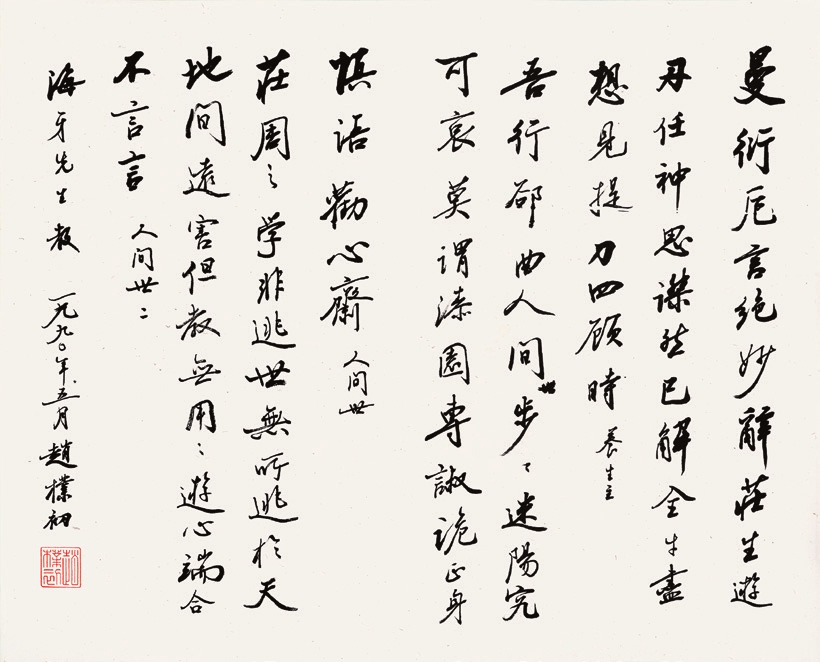 曼衍卮言絶妙辭莊生遊
刃任神思謋然已解全牛盡
想見提刀四顧時 養生主
吾行郤曲人间世步〻迷陽究
可哀莫謂漆園專諔詭正身
慎语勸心齋 人间世
莊周之学非逃世無所逃於天
地间遠害但教無用〻遊心端合
不言言 人间世二
海牙先生教 一九九〇年五月 趙樸初
趙樸初